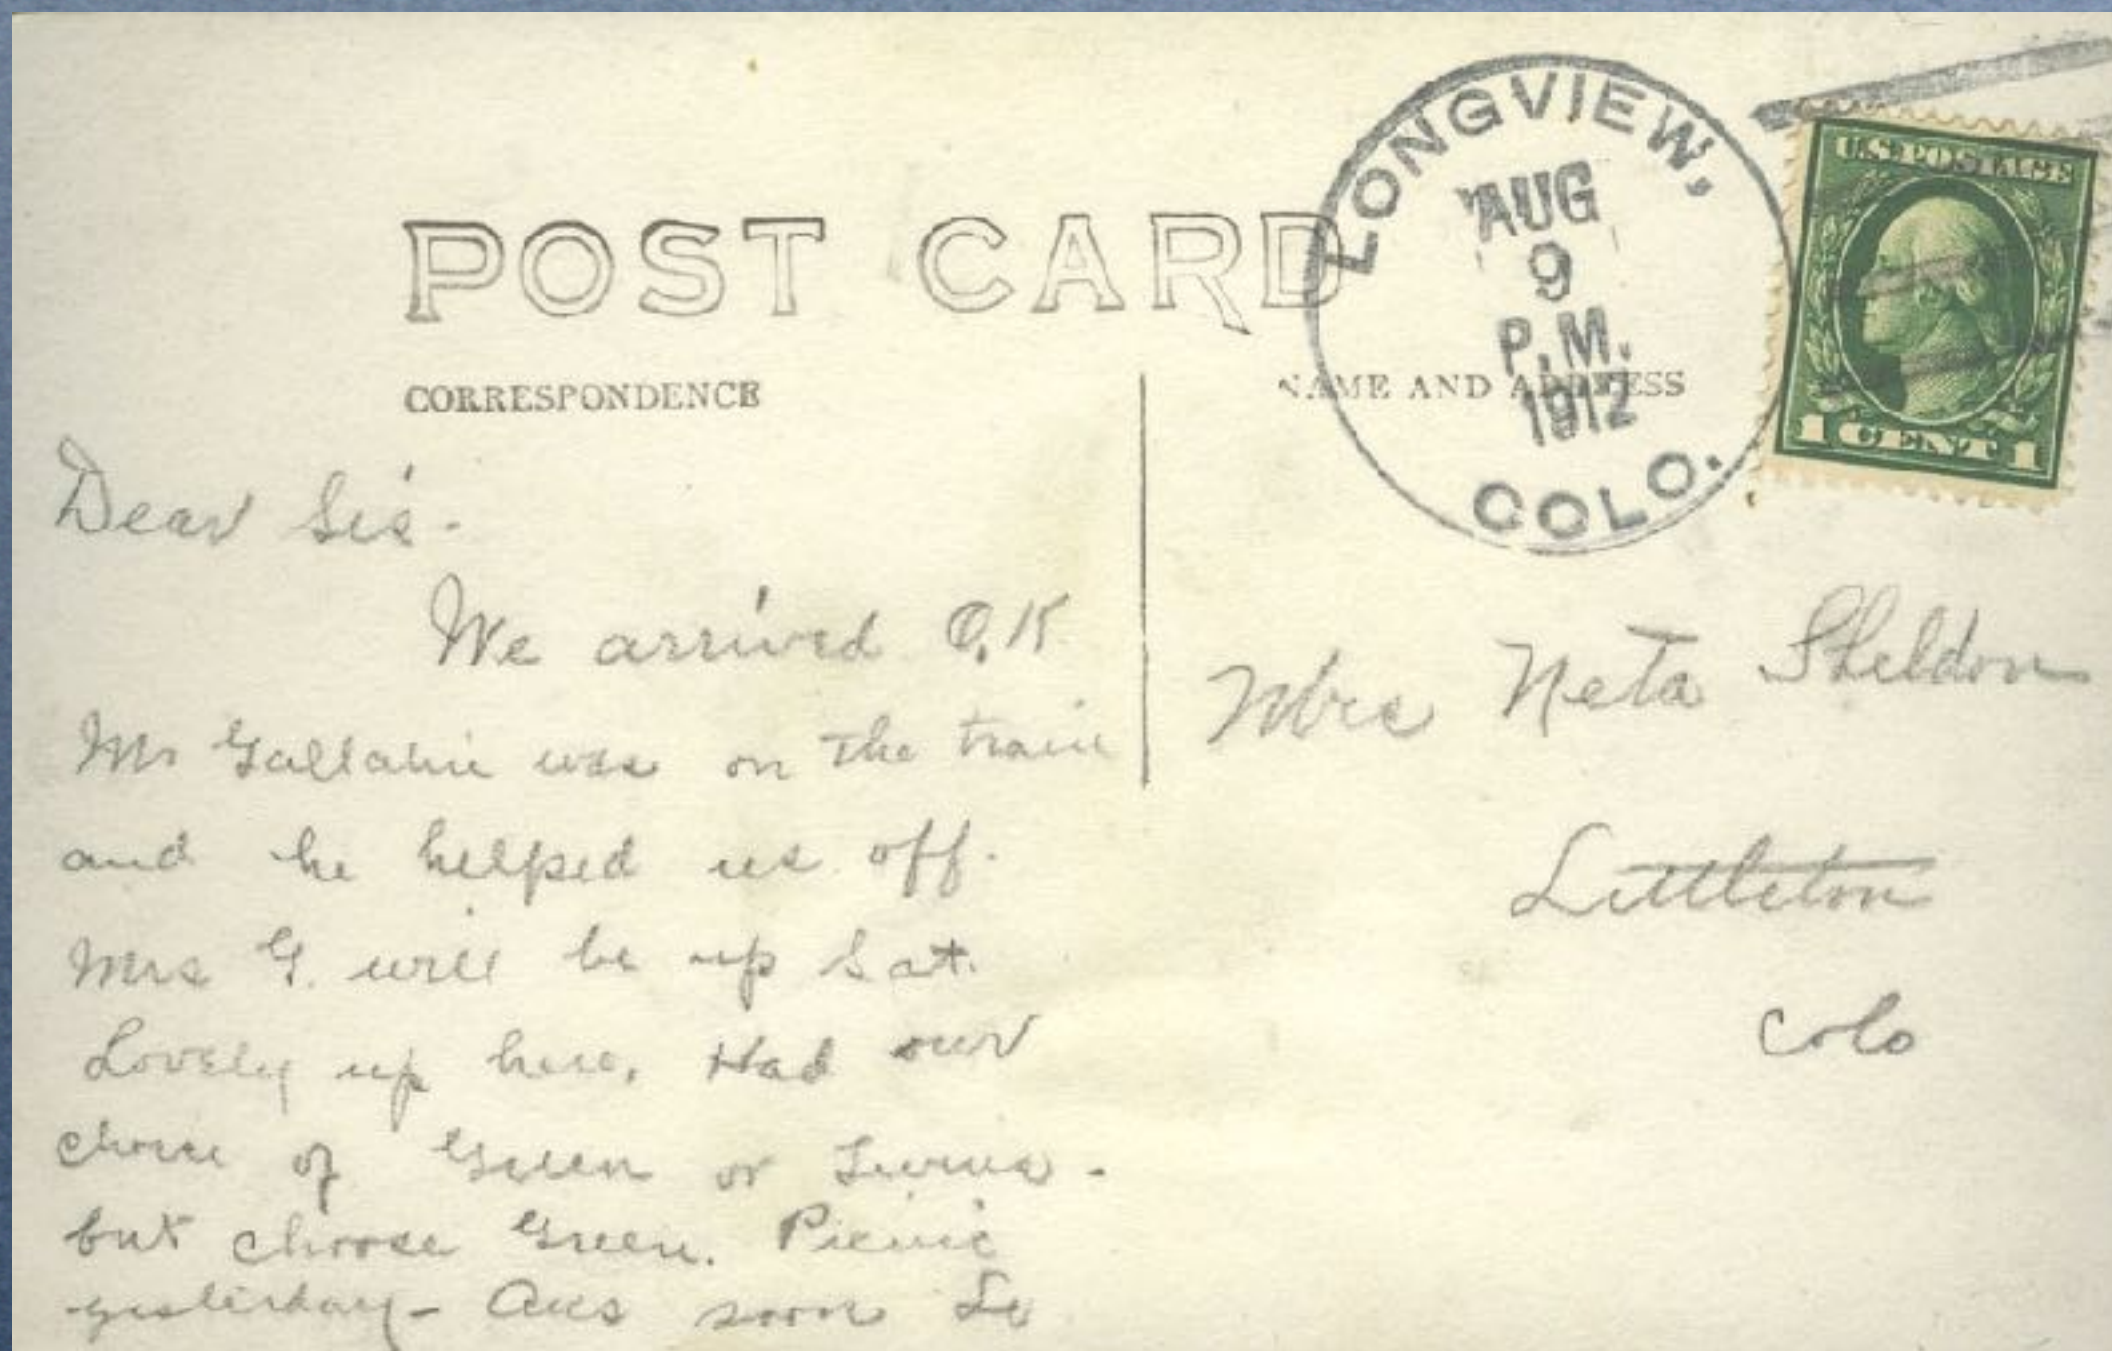 POST CARD
LONGVIEW,
AUG
9
P.M.
1912
COLO.
U.S. POSTAGE
1 CENT 1
CORRESPONDENCE
NAME AND ADDRESS
Dear Sis -
We arrived O.K
Mr was on the train
and he helped us off.
Mrs G. will be up Sat.
Lovely up here. Had our
choice of Green or
but choose Green. Picnic
yesterday - Ans soon
Mrs Neta Sheldon
Littleton
Colo